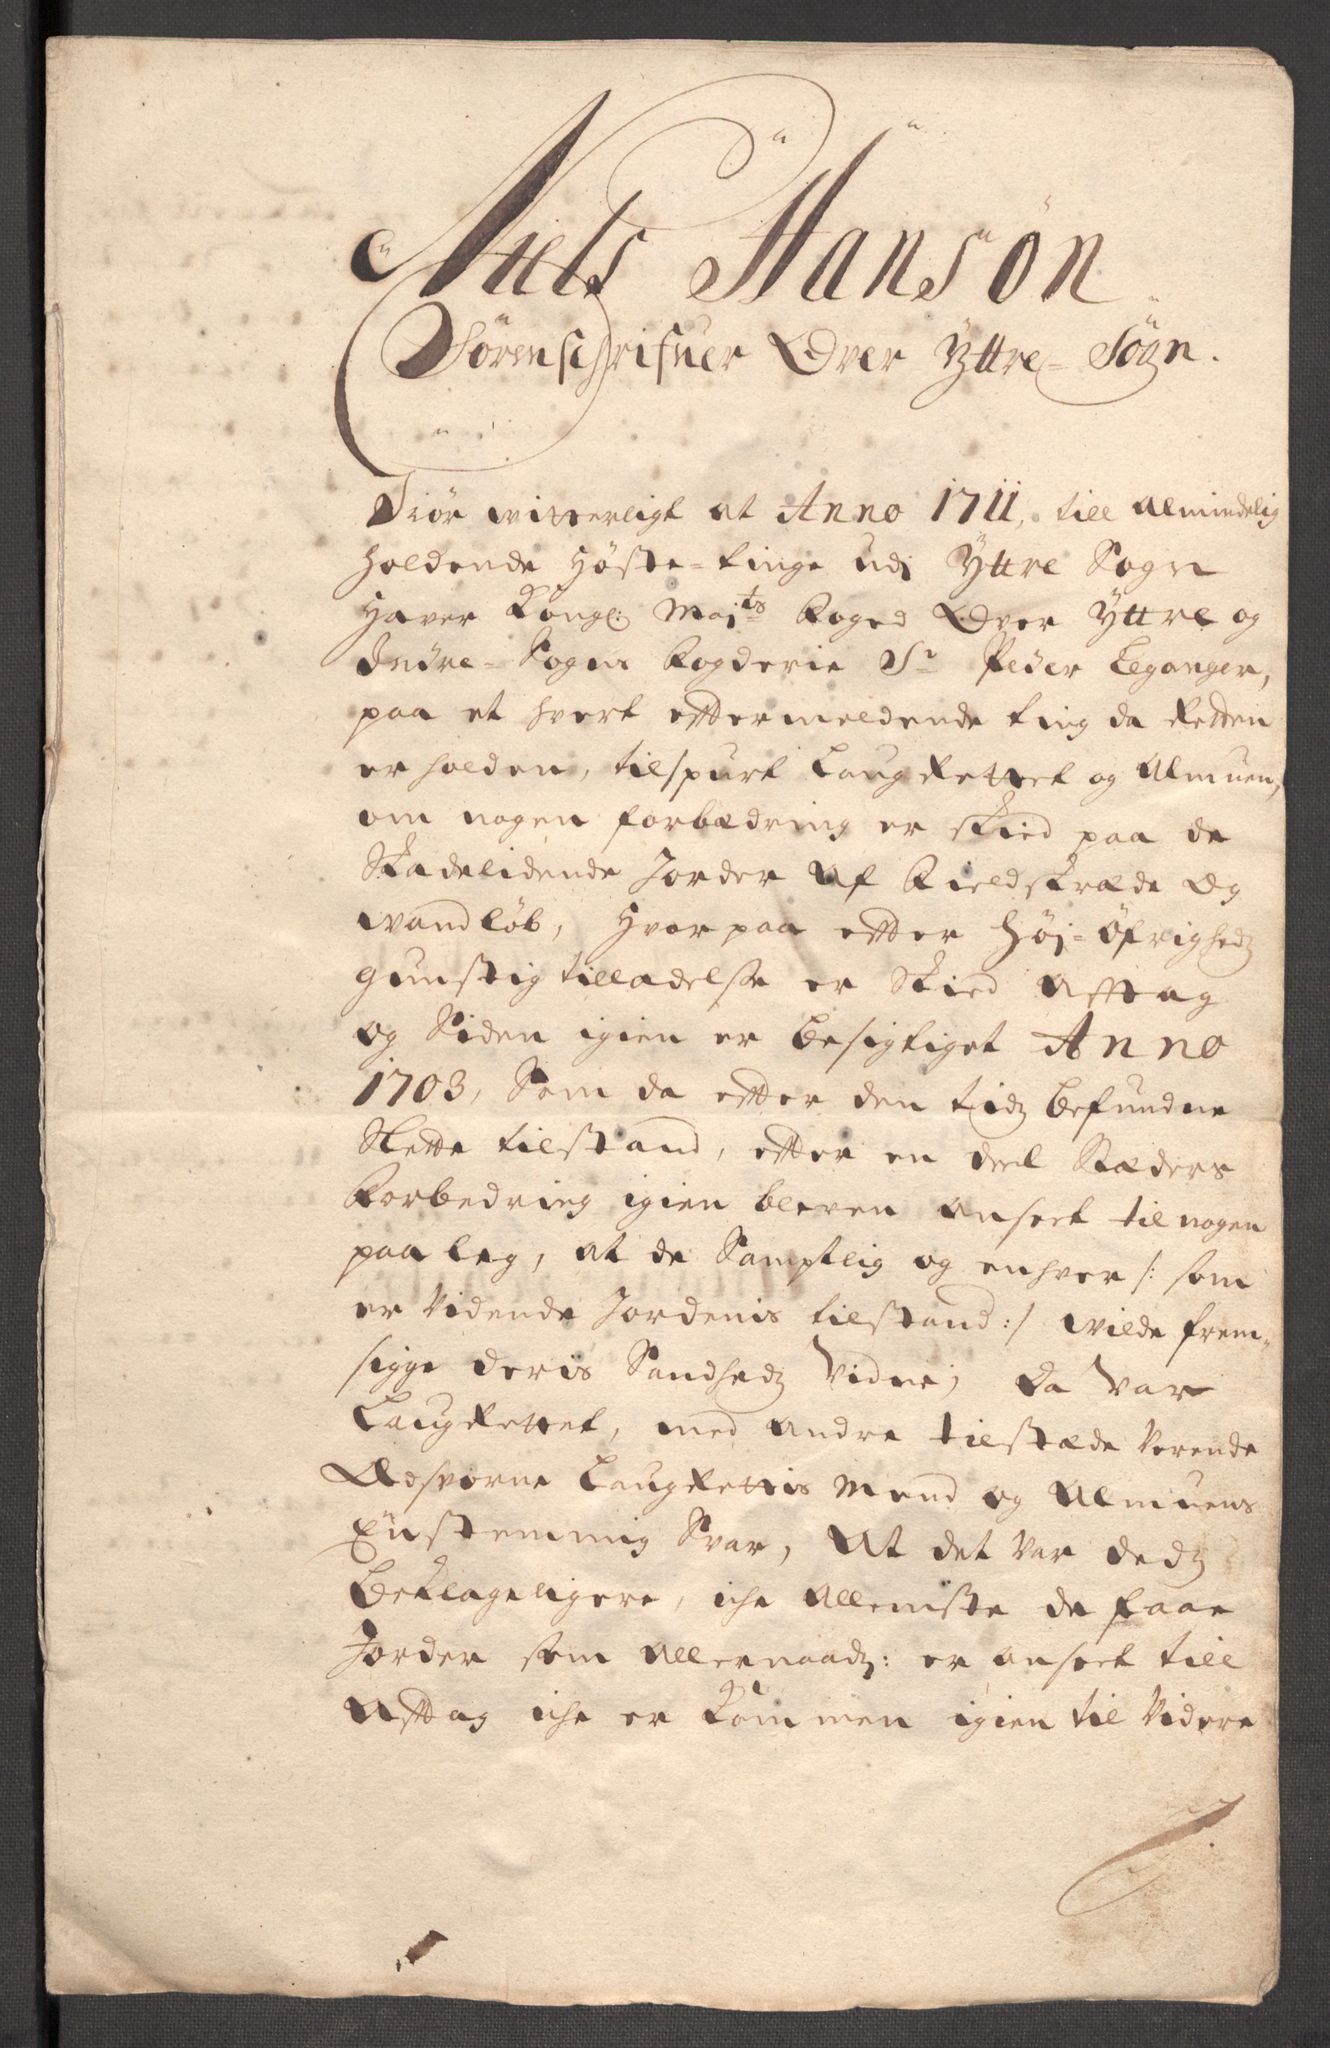 Niels Hansøn
Sörenschrifuer Over Yttre-Sögn.
Giör witterligt at Anno 1711, till almindelig
holdende Høste-tinge udi Yttre Sogn
Haver Kongl: Maj:ts Foged Over Yttre og
Indre-Sogns Fogderie Sr Peder Leganger,
paa et hvert efftermeldende ting da Retten
er holden, tilspurt LaugRettet og Almuen,
om nogen forbædring er skied paa de
Skadelidende Jorder Af Fieldskræde Og
Wandløb, Hvorpaa effter Høj-Øfrighedz
gunstig tilladelsse er Skied Afftag
og Siden igien er besigtiget Anno
1703, Som da effter den tidz befundne
Slette tilstand, effter en deel Stæders
Forbedring igien bleven anseet til nogen
paaleg, At de Samptlig og enhver /: som
er Vidende Jordenis tilstand :/ wilde frem-
sigge deris Sandhedz Vidne; Da Var
LaugRettet, med Andre tilstæde Verende
Edsvorne LaugRettis Mend og Almuens
Eenstemmig Svar, At det Var dedz
Beklageligere, iche Alleniste de faae
Jorder som Allernaadz: er anseet till
Afftag iche er kommen igien til Videre